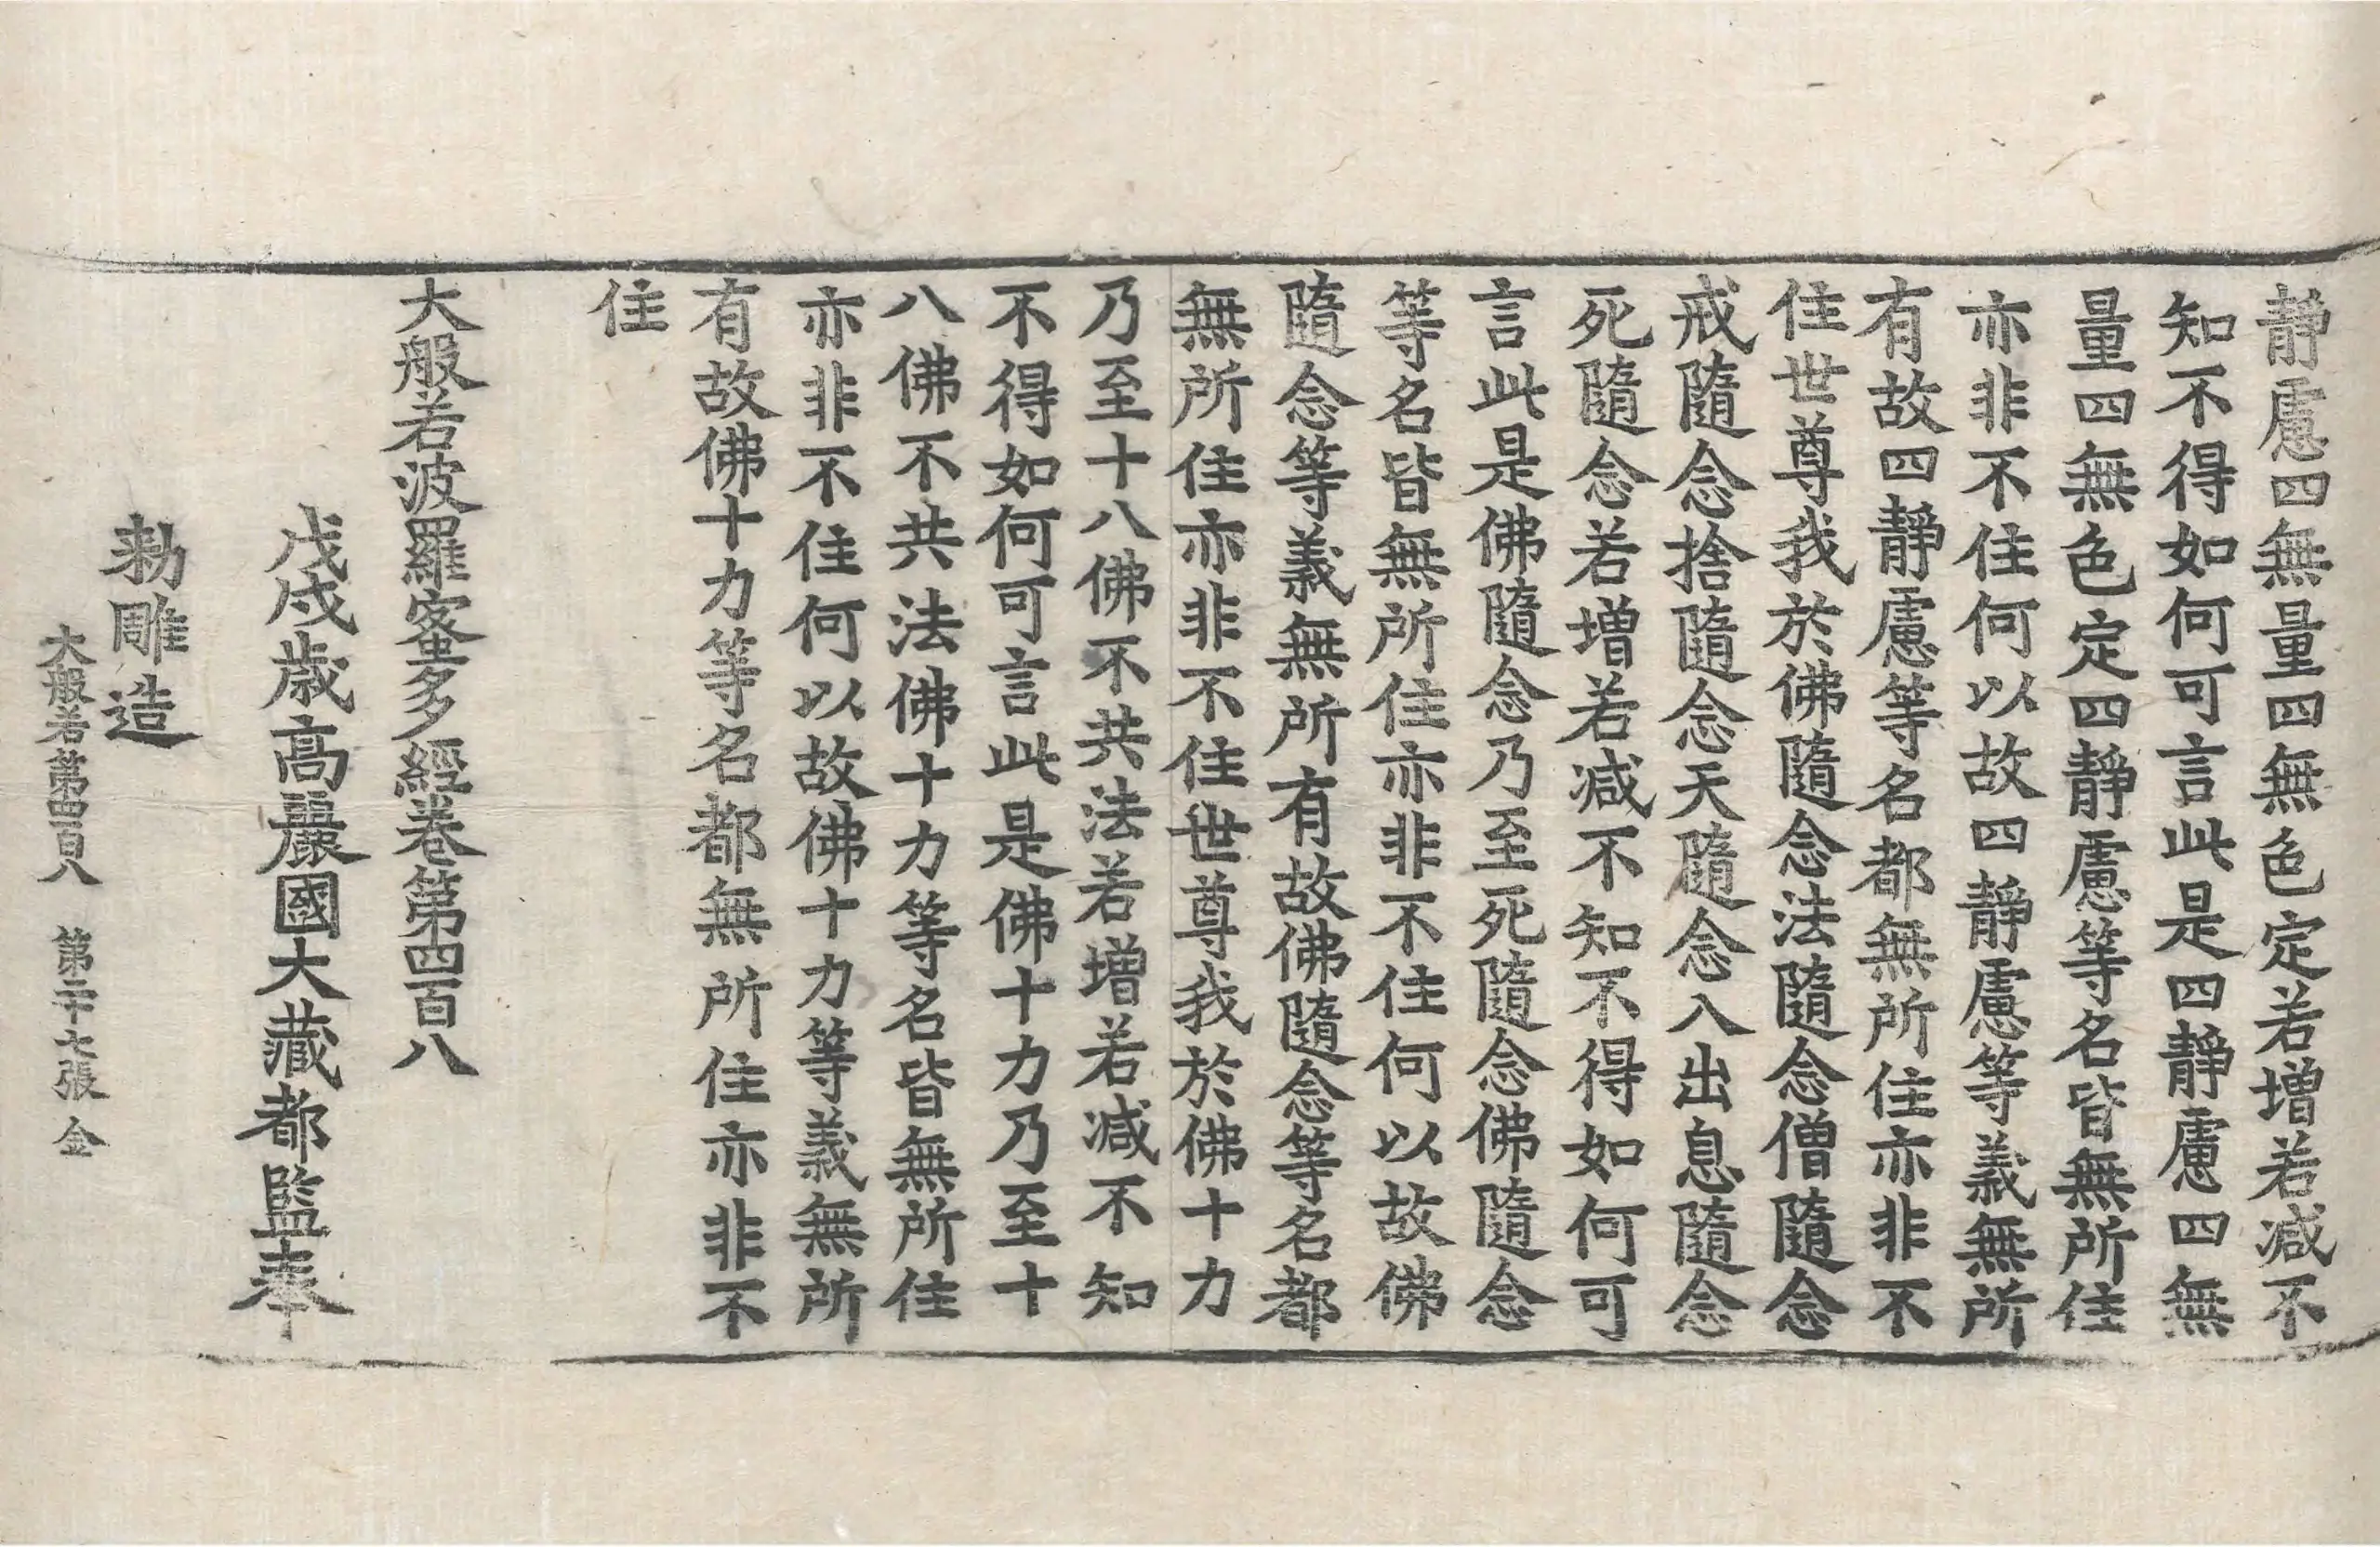 靜慮四無量四無色定若增若減不
知不得如何可言此是四靜慮四無
量四無色定四靜慮等名皆無所住
亦非不住何以故四靜慮等義無所
有故四靜慮等名都無所住亦非不
住世尊我於佛隨念法隨念僧隨念
戒隨念捨隨念天隨念入出息隨念
死隨念若增若減不知不得如何可
言此是佛隨念乃至死隨念佛隨念
等名皆無所住亦非不住何以故佛
隨念等義無所有故佛隨念等名都
無所住亦非不住世尊我於佛十力
乃至十八佛不共法若增若減不知
不得如何可言此是佛十力乃至十
八佛不共法佛十力等名皆無所住
亦非不住何以故佛十力等義無所
有故佛十力等名都無所住亦非不
住
大般若波羅蜜多經卷第四百八
戊戌歲高麗國大藏都監奉
勑雕造
大般若第四百八 第二十七張 金